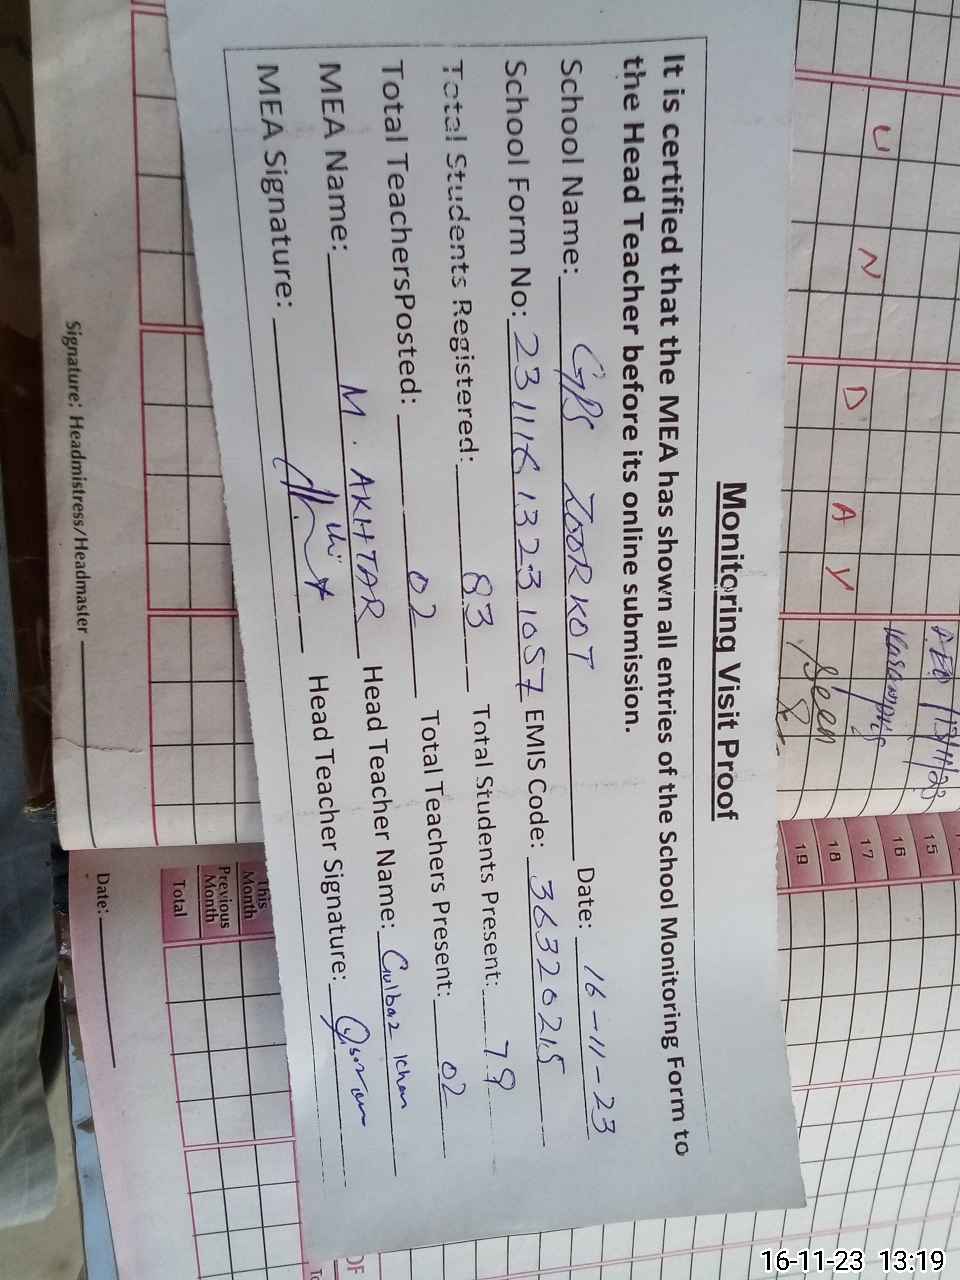 Monitoring Visit Proof
It is certified that the MEA has shown all entries of the School Monitoring Form to
the Head Teacher before its online submission.
School Name: GPS ZOOR KOT Date: 16-11-23
School Form No: EMIS Code: 36320215
Total Students Registered: 83 Total Students Present: 79
Total TeachersPosted: 02 Total Teachers Present: 02
MEA Name: M. AKHTAR Head Teacher Name: Gulbaz Khan
MEA Signature: Head Teacher Signature:
S U N D A Y
13/11/23
Seen
15
16
17
18
19
This Month
Previous Month
Total
Signature: Headmistress/Headmaster
Date:
16-11-23 13:19